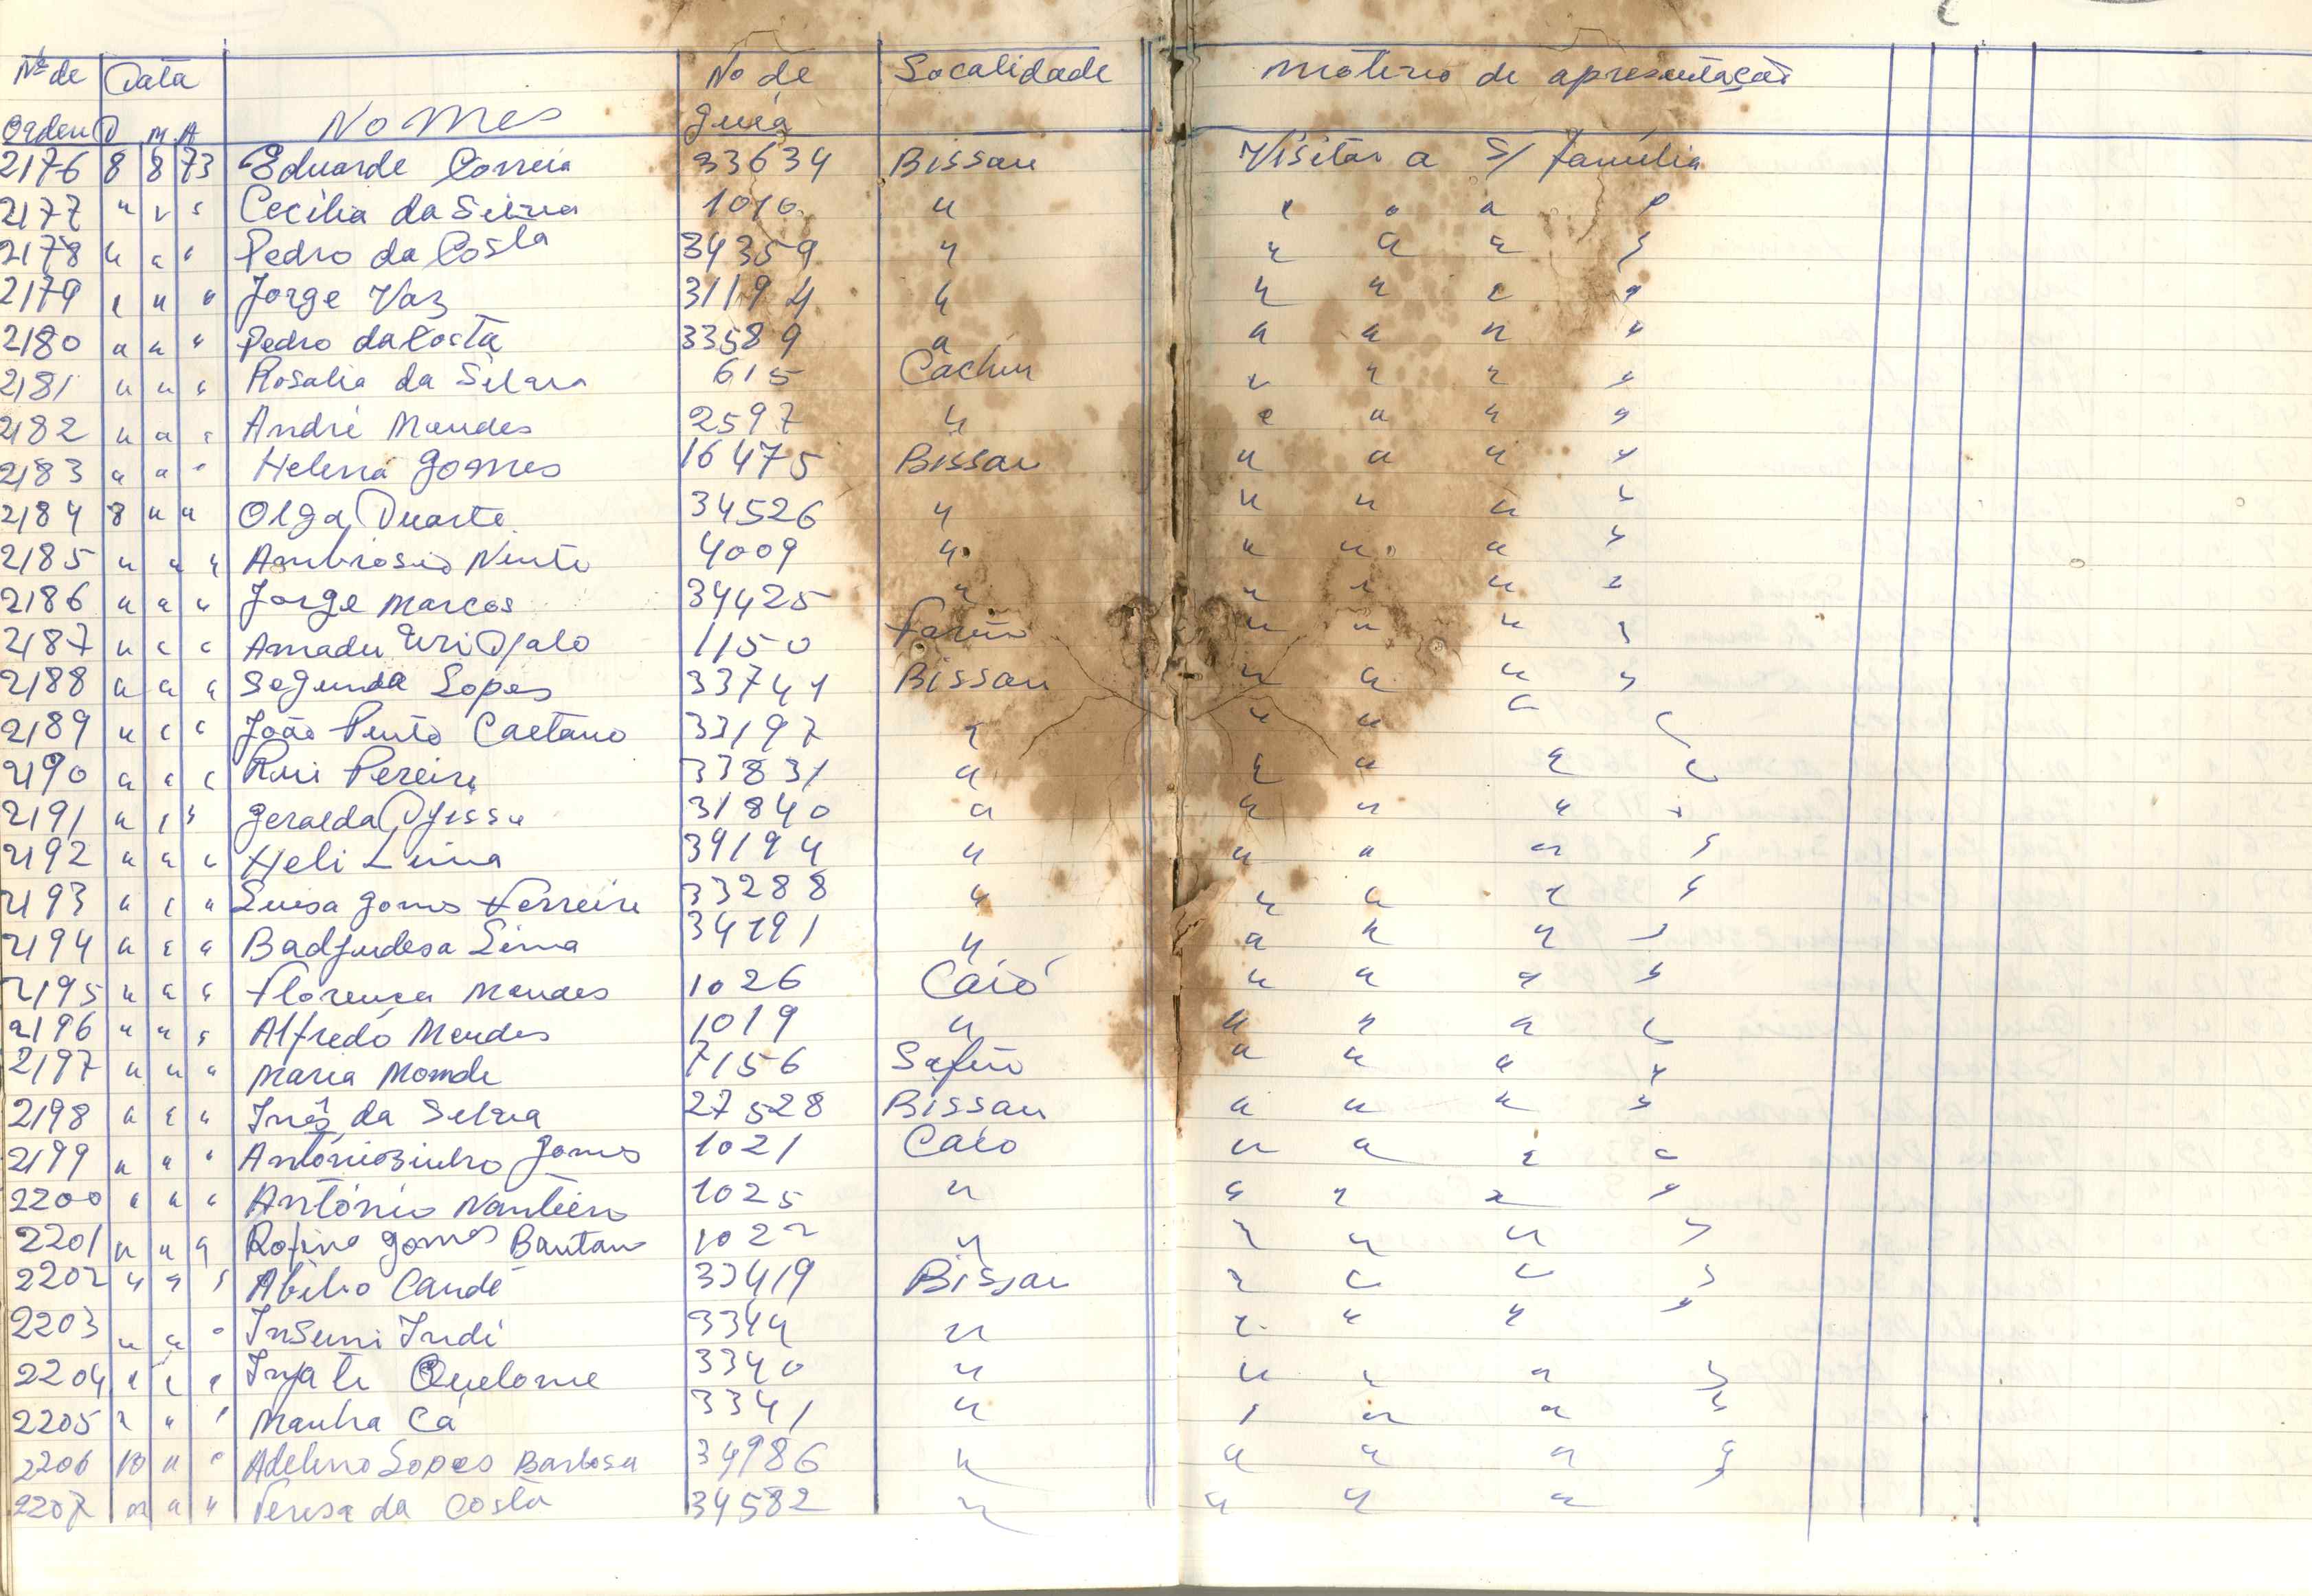 Nº de Data No de Localidade Motivo de apresentação
Ordem D M A Nomes guia
2176 8 8 73 Eduarde Correia 33634 Bissau Visitar a s/ família
2177 " " " Cecilia da Selva 1010 " " " " "
2178 " " " Pedro da Costa 34359 " " " " "
2179 " " " Jorge Vaz 31194 " " " " "
2180 " " " Pedro da Costa 33589 " " " " "
2181 " " " Rosalia da Selava 615 Cacheu " " " "
2182 " " " André Mendes 2597 " " " " "
2183 " " " Helena Gomes 16475 Bissau " " " "
2184 8 " " Olga Duarte 34526 " " " " "
2185 " " " Ambrosio 4009 " " " " "
2186 " " " Jorge Marcos 34425 " " " " "
2187 " " " Amadu Uri Djalo 1150 Farim " " " "
2188 " " " Segunda Lopes 33741 Bissau " " " "
2189 " " " João Pinto Caetano 33197 " " " " "
2190 " " " Rui Pereira 33831 " " " " "
2191 " " " Geralda Djissu 31840 " " " " "
2192 " " " Heli Lima 39194 " " " " "
2193 " " " Luisa Gomes Ferreira 33288 " " " " "
2194 " " " Badjudesa Lima 34191 " " " " "
2195 " " " Florença Mendes 1026 Caió " " " "
2196 " " " Alfredo Mendes 1019 " " " " "
2197 " " " Maria 7156 Safim " " " "
2198 " " " Inês da Selva 27528 Bissau " " " "
2199 " " " Antóniozinho Gomes 1021 Caio " " " "
2200 " " " António 1025 " " " " "
2201 " " " Rofino Gomes 1022 " " " " "
2202 " " " Abilio Candé 33419 Bissau " " " "
2203 " " " Insumi Indi 3344 " " " " "
2204 " " " Injate Quelome 3340 " " " " "
2205 " " " Manha Cá 3341 " " " " "
2206 10 " " Adelino Lopes Barbosa 34986 " " " " "
2207 " " " Teresa da Costa 34582 " " " "